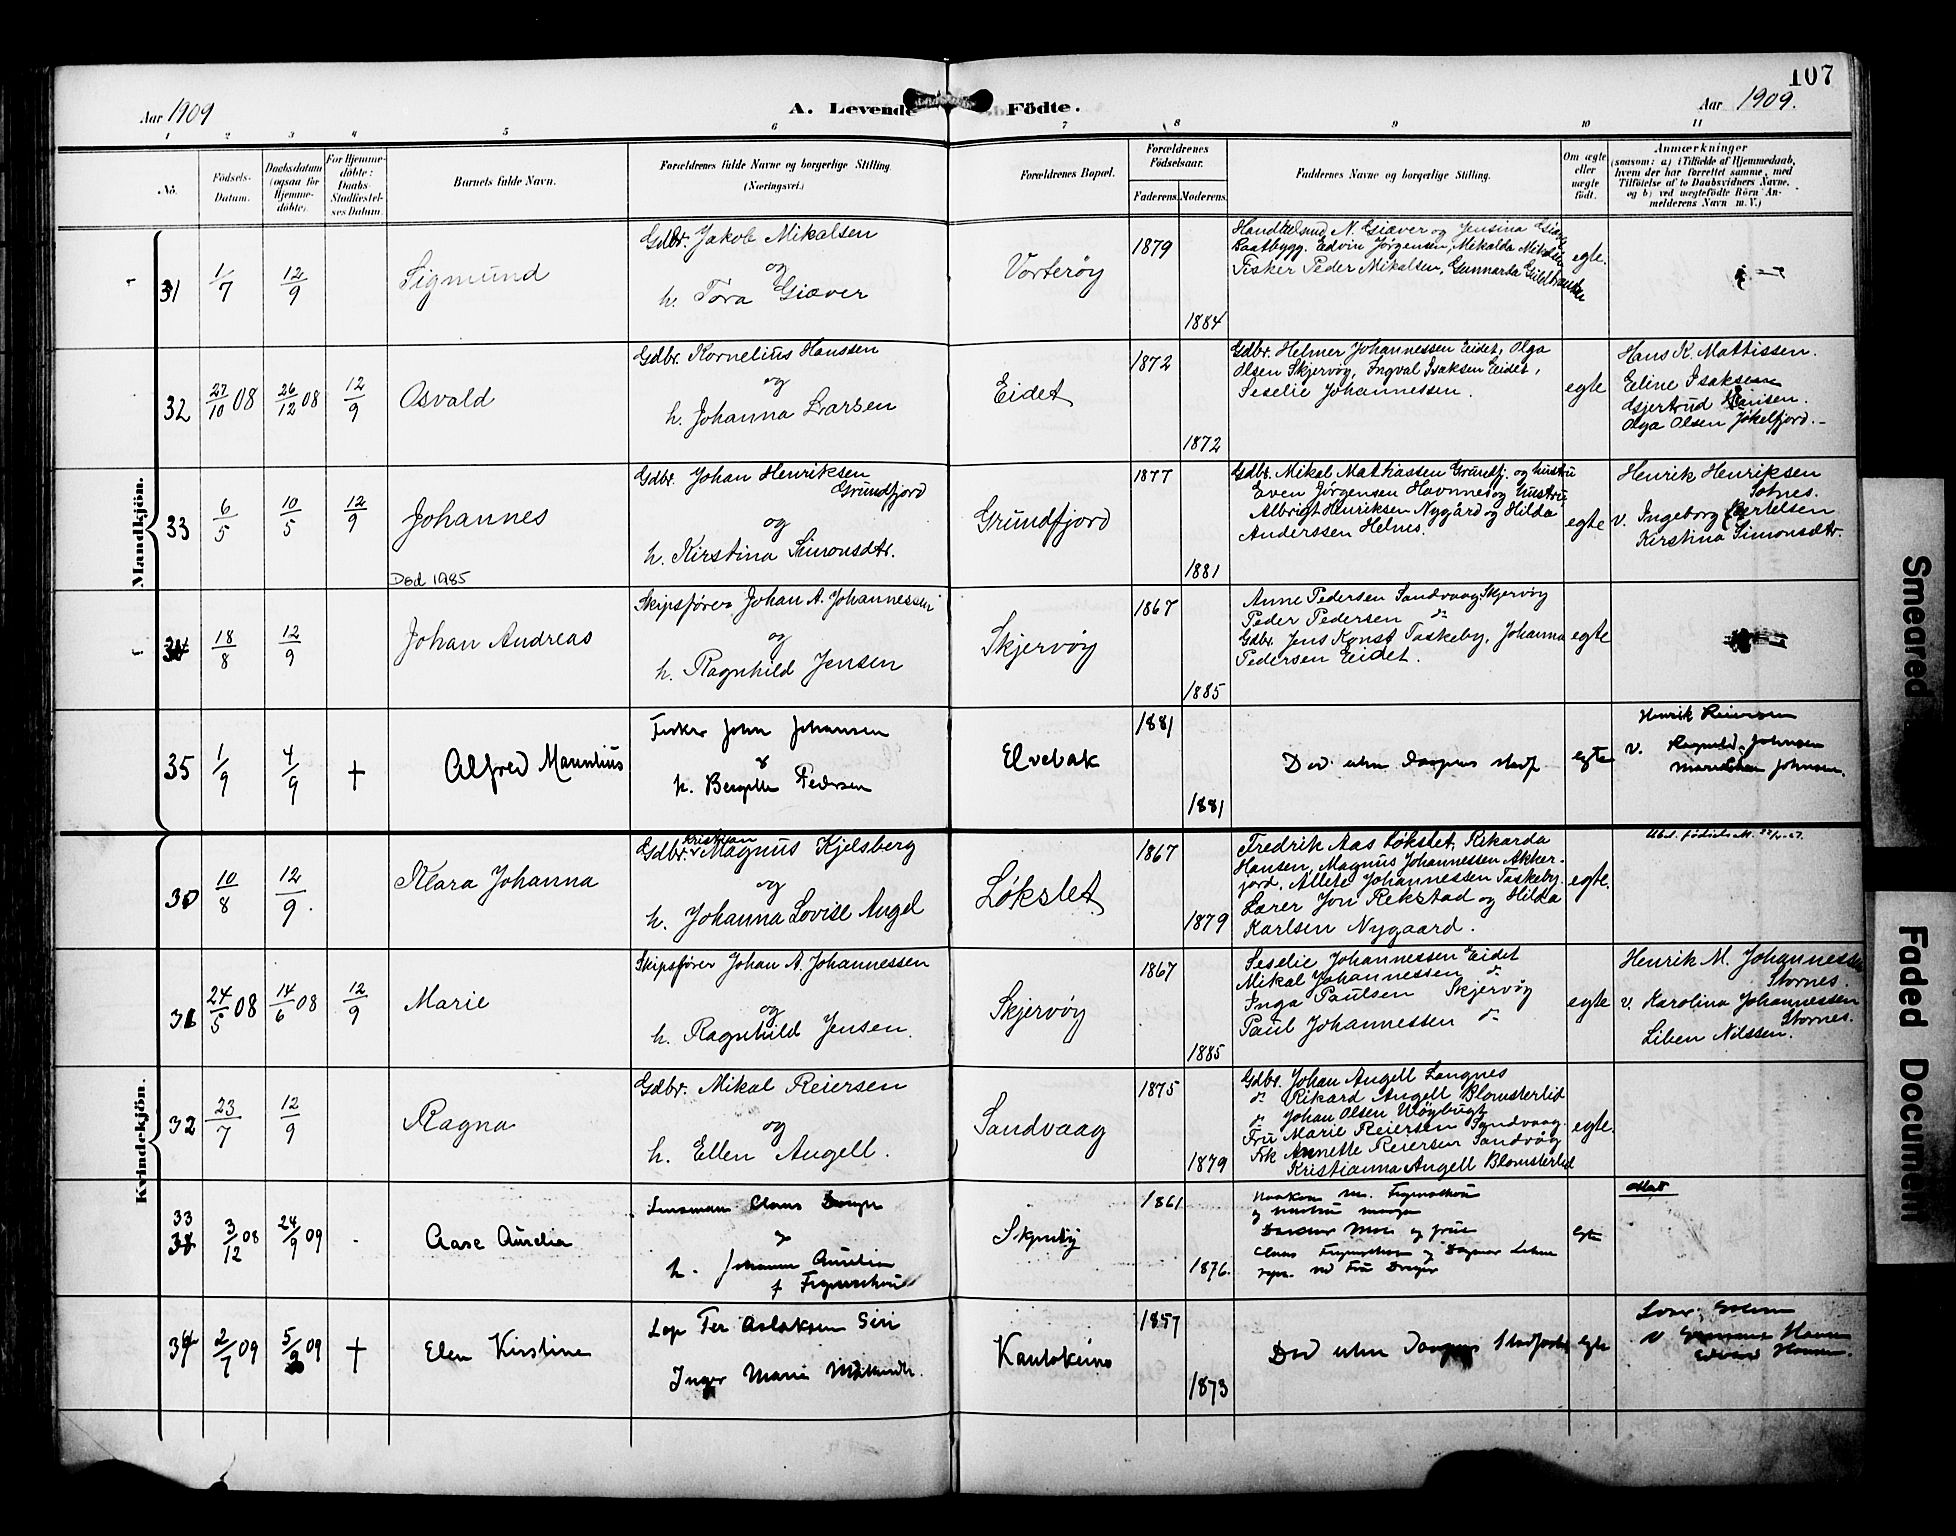 107
Aar 1909
A. Levende Födte.
Aar 1909.
1 2 3 4 5 6 7 8 9 10 11
No.
Födsels-
Datum.
Daabsdatum
(ogsaa for
Hjemme-
döbte).
For Hjemme-
döbte:
Daabs-
Stadfæstel-
ses Datum.
Barnets fulde Navn.
Forældrenes fulde Navne og borgerlige Stilling
(Næringsvei.)
Forældrenes Bopæl.
Forældrenes
Födselsaar.
Faderens. Moderens.
Faddernes Navne og borgerlige Stilling.
Om ægte
eller
uægte
født.
Anmærkninger
(saasom: a) i Tilfælde af Hjemmedaab,
hvem der har forrettet samme, med
Tilföielse af to Daabsvidners Navne,
og b) ved uægtefödte Börn An-
melderens Navn m. V.)
Mandkjön.
31
1/7
12/9
Sigmund
Gdbr. Jakob Mikalsen
og
h. Tora Giæver
Vorterøy
1879
1884
N. Giæver og Jensina Giæver
Baatbygg. Edvin Jørgensen, Mikalda Mikalsen
Fisker Peder Mikalsen, Gunnarda Guldbrandsen
egte.
32
27/10 08
26/12 08
12/9
Osvald
Gdbr. Kornelius Hanssen
og
h. Johanna Larsen
Eidet
1872
1872
Gdbr. Helmer Johannessen Eidet, Olga
Olsen Skjervøy, Ingval Isaksen Eidet,
Seselie Johannessen.
egte
Hans K. Mattissen.
Eline Isaksen
Gjertrud
Olga Olsen Jøkelfjord.
33
6/5
10/5
12/9
Johannes
Død 1985
Gdbr. Johan Henriksen
Grundfjord
og
h. Kirstina Simonsdtr.
Grundfjord
1877
1881
Gdbr. Mikal Mathiassen Grundfj. og hustru
Even Jørgensen Havnnes og hustru
Albrigt Henriksen Nygård og Hilda
Anderssen Helnes.
egte
Henrik Henriksen
Sotnes.
v. Ingeborg
Kirstina Simonsdtr.
34
18/8
12/9
Johan Andreas
Skipsfører Johan A. Johannessen
og
h. Ragnhild Jensen
Skjervøy
1867
1885
Anne Pedersen Sandvaag, Skjervøy
Peder Pedersen do
Gdbr. Jens Konst Taskeby, Johanna
Pedersen Eidet.
egte
35
1/9
4/9
+
Alfred Mauritius
Fisker John Johansen
&
h. Bergitte Pedersen
Elvebak
1881
1881
Død uten Daapens stadf.
egte
Henrik Reiersen
v. Ragnhild Johnsen
Johnsen.
Kvindekjön.
30
10/8
12/9.
Klara Johanna
Kristian
Gdbr. Magnus Kjelsberg
og
h. Johanna Lovise Angel
Løkslet
1867
1879
Fredrik Aas Løkslet, Rikarda
Hansen, Magnus Johannessen Akker-
fjord, Allete Johannessen Taskeby.
Lærer Jon Rekstad og Hilda
Karlsen Nygaard.
egte.
Utst. fødsels
31
24/5 08
14/6 08
12/9
Marie
Skipsfører Johan A. Johannessen
og
h. Ragnhild Jensen.
Skjervøy
1867
1885
Seselie Johannessen Eidet
Mikal Johannessen do
Inga Paulsen Skjervøy
Paul Johannessen do
egte
Henrik M. Johannessen
Stornes.
v. Karolina Johannessen
Stornes.
Liben Nilssen.
32
23/7
12/9
Ragna
Gdbr. Mikal Reiersen
og
h. Ellen Angell.
Sandvaag
1875
1879
Gdbr. Johan Angell Langnes
do Rikard Angell Blomsterlid
do Johan Olsen
Fru Marie Reiersen Sandvaag
Frk Annette Reiersen Sandvåg
Kristianna Angell Blomsterlid
egte.
33
3/12 08
24/9 09
Aase Aurelia
Lensmann Claus
og
h. Johanna Aurelia
f
Skjervøy
1861
1876.
og
og frue
Claus og Dagmar
repr. ved Fru
Egte
34
2/7 09
5/9 09
+
Elen Kirstine
Lap Per Aslaksen Siri
Inger Marie
Kautokeino
1857
1873
Død uten Daapens Stadfæstelse
Egte
v.
Edvard Hansen.
Smeared
Faded Document